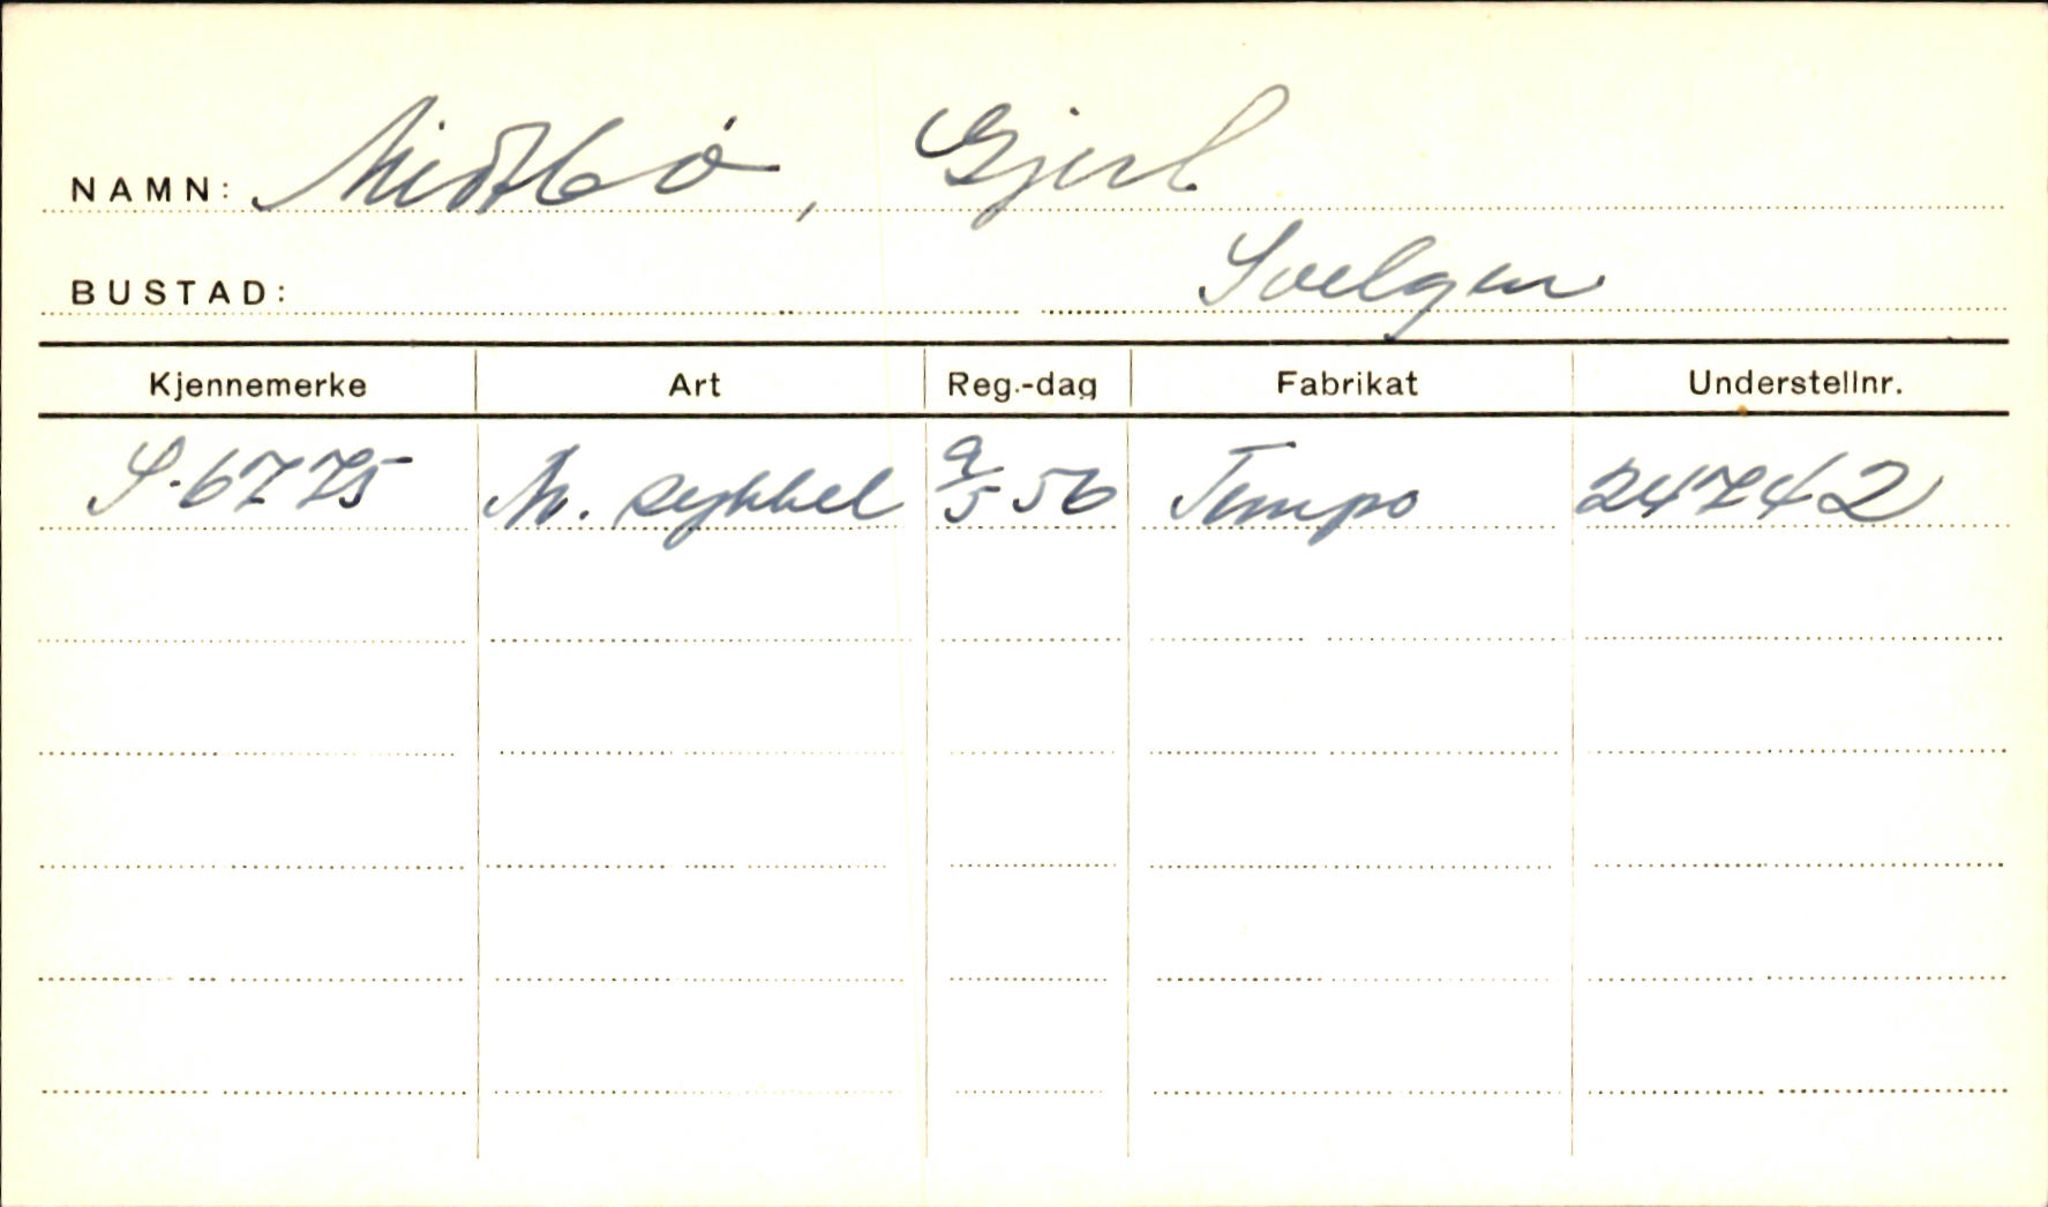 NAMN: Midtbø, Gjerl.
BUSTAD: Svelgen
Kjennemerke Art Reg.-dag Fabrikat Understellnr.
S-6775 M. sykkel 9/5 56 Tempo 24742